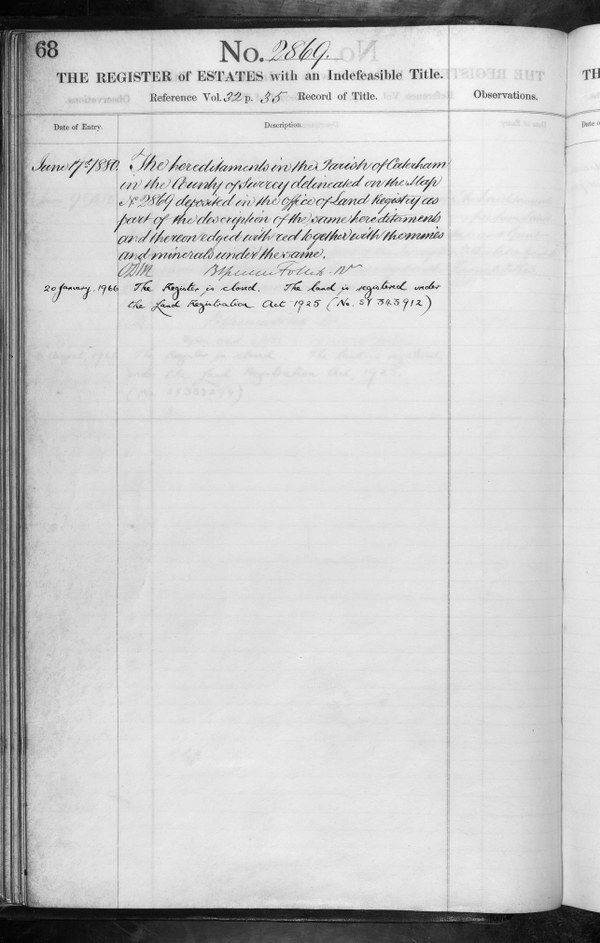 68
No. 2869.
THE REGISTER of ESTATES with an Indefeasible Title.
Reference Vol. 32 p. 35 Record of Title.
Observations.
Date of Entry.
Description.
June 17th 1880. The hereditaments in the Parish of Caterham
in the County of Surrey delineated on the Map
No 2869 deposited in the office of Land Registry as
part of the description of the same hereditaments
and thereon edged with red together with the mines
and minerals under the same.
20 January. 1966 The Register is closed. The land is registered under
the Land Registration Act 1925 (No. SY 343912)
TH
Date o